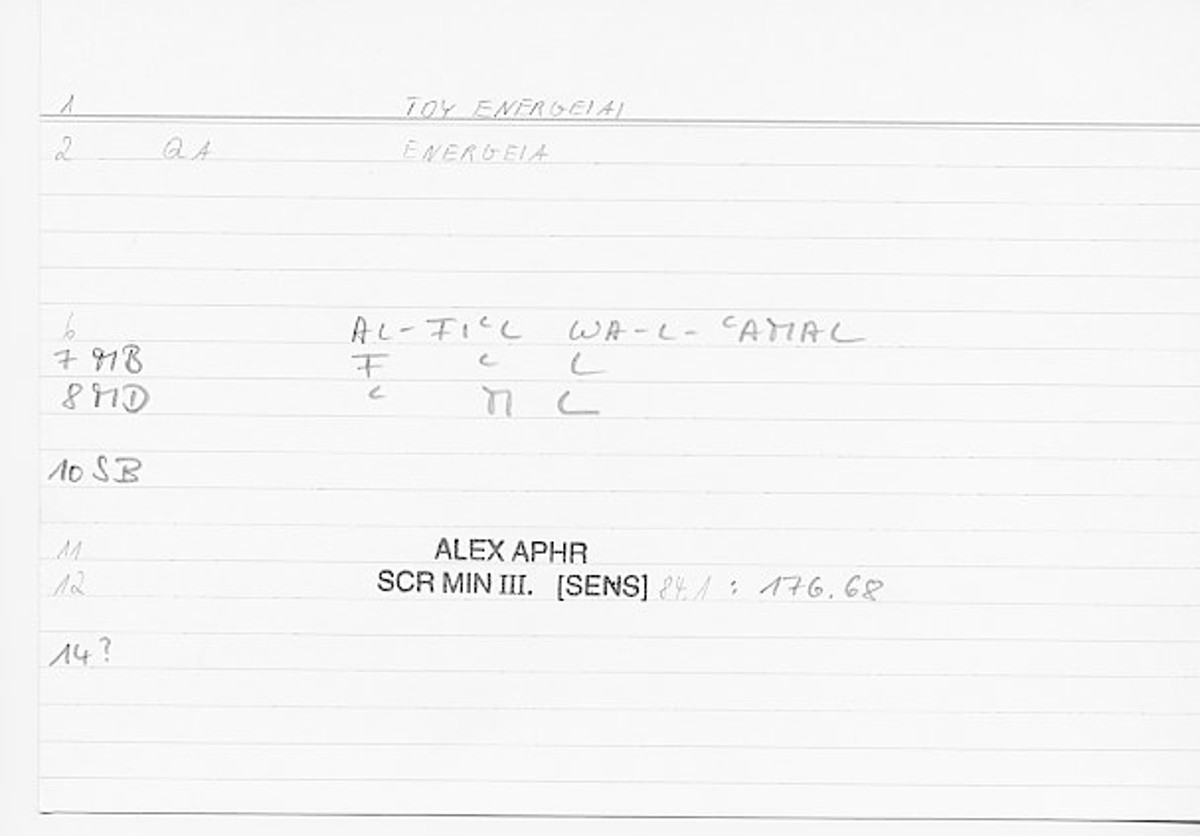 1 TOY ENERGEIAI
2 QA ENERGEIA
6 AL-FIᶜL WA-L-ᶜAMAL
7 MB F ᶜ L
8 MD ᶜ M L
10 SB
11 ALEX APHR
12 SCR MIN III. [SENS] 84.1 : 176.68
14?